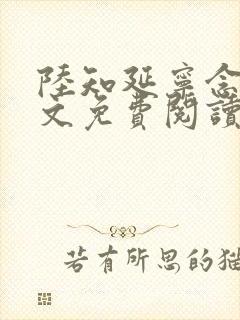 陸知延寧念
文免費閱讀
若有所思的猫